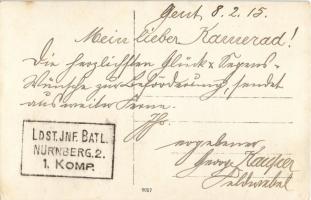 Gent, 8.2.15.
Mein lieber Kamerad!
Die herzlichsten Glück & Segens-
Wünsche zur Beförderung, sendet
aus weiter Ferne.
Ihr
ergebener
Georg
Feldwebel
LDST. JNF. BATL.
NÜRNBERG. 2.
1. KOMP.